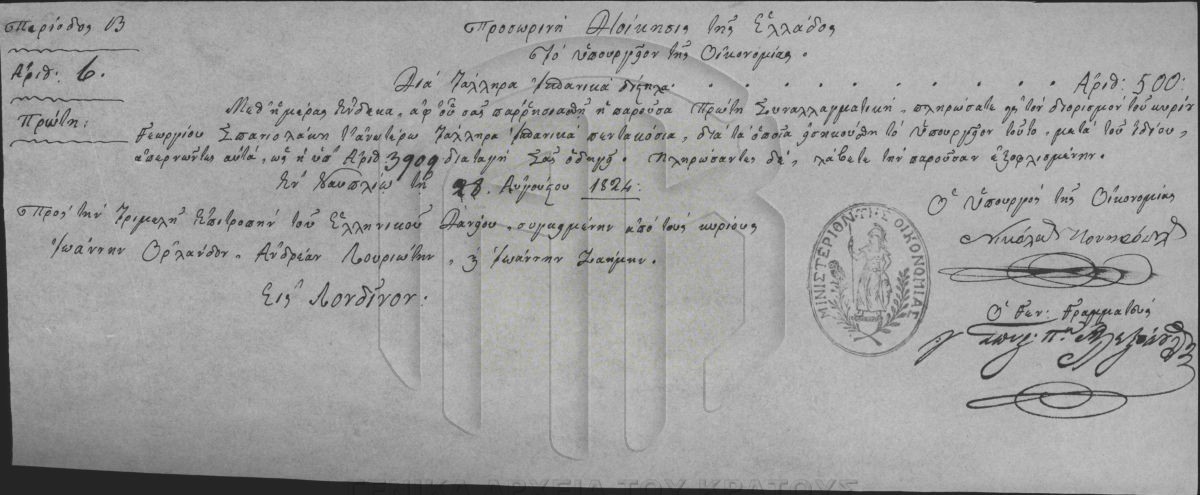 Περίοδος Β
Ἀριθ: 6.
Πρώτη:
Προσωρινὴ Διοίκησις τῆς Ἑλλάδος
Τὸ Ὑπουργεῖον τῆς Οἰκονομίας.
Διὰ Τάλληρα Ἱσπανικὰ δίστηλα . . . . . . . . . . Ἀριθ: 500:
Μεθ' ἡμέρας ἕνδεκα, ἀφ' οὗ σᾶς παρρησιασθῇ ἡ παροῦσα Πρώτη Συναλλαγματική, πληρώσατε εἰς τὸν διορισμὸν τοῦ κυρίου
Γεωργίου Σπανιολάκη Τάλληρα Ἱσπανικὰ πεντακόσια, διὰ τὰ ὁποῖα τὸ Ὑπουργεῖον τοῦτο, μετὰ τοῦ ἰδίου,
ἀπερνῶντες αὐτά, ὡς ἡ ὑπ' Ἀριθ. 3909 διαταγὴ Σᾶς ὁδηγεῖ. Πληρώσαντες δέ, λάβετε τὴν παροῦσαν ἐξοφλισμένην.
Ἐν Ναυπλίῳ τῇ 28. Αὐγούστου 1824:
Πρὸς τὴν Τριμελῆ Ἐπιτροπὴν τοῦ Ἑλληνικοῦ Δανείου, συγκειμένην ἀπὸ τοὺς κυρίους
Ἰωάννην Ὀρλάνδον, Ἀνδρέαν Λουριώτην, καὶ Ἰωάννην Ζαήμην.
Εἰς Λονδῖνον:
Ὁ Ὑπουργὸς τῆς Οἰκονομίας
Νικόλαος
ΜΙΝΙΣΤΕΡΙΟΝ ΤΗΣ ΟΙΚΟΝΟΜΙΑΣ
Ὁ Γεν: Γραμματεύς